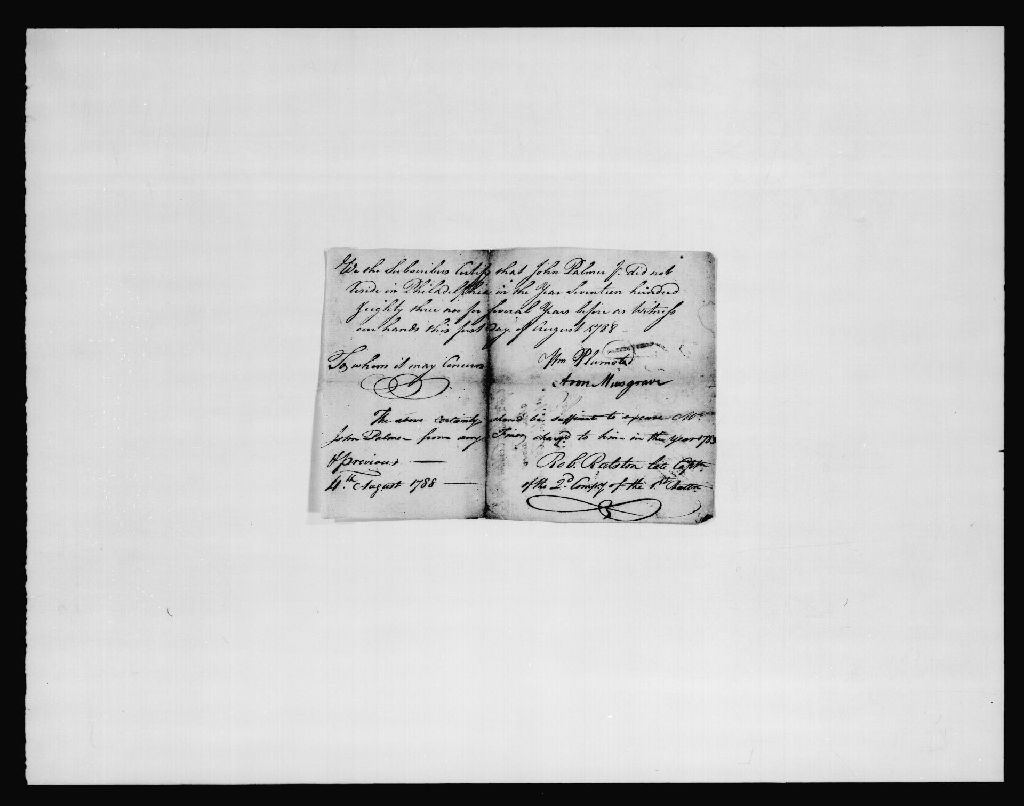 We the Subscribers Certify that John Palmer Jr. did not
reside in Philadelphia in the Year Seventeen hundred
& eighty three nor for several Years before as Witness
our hands this first day of August 1788
To whom it may Concern Wm Plumsted
Aron Musgrave
The above certainly should be sufficient to Mr
John Palmer from any Fines charged to him in the year 1783
& previous —
4th August 1788 — Rob. Ralston late Capt
of the 2d Compy of the 1st